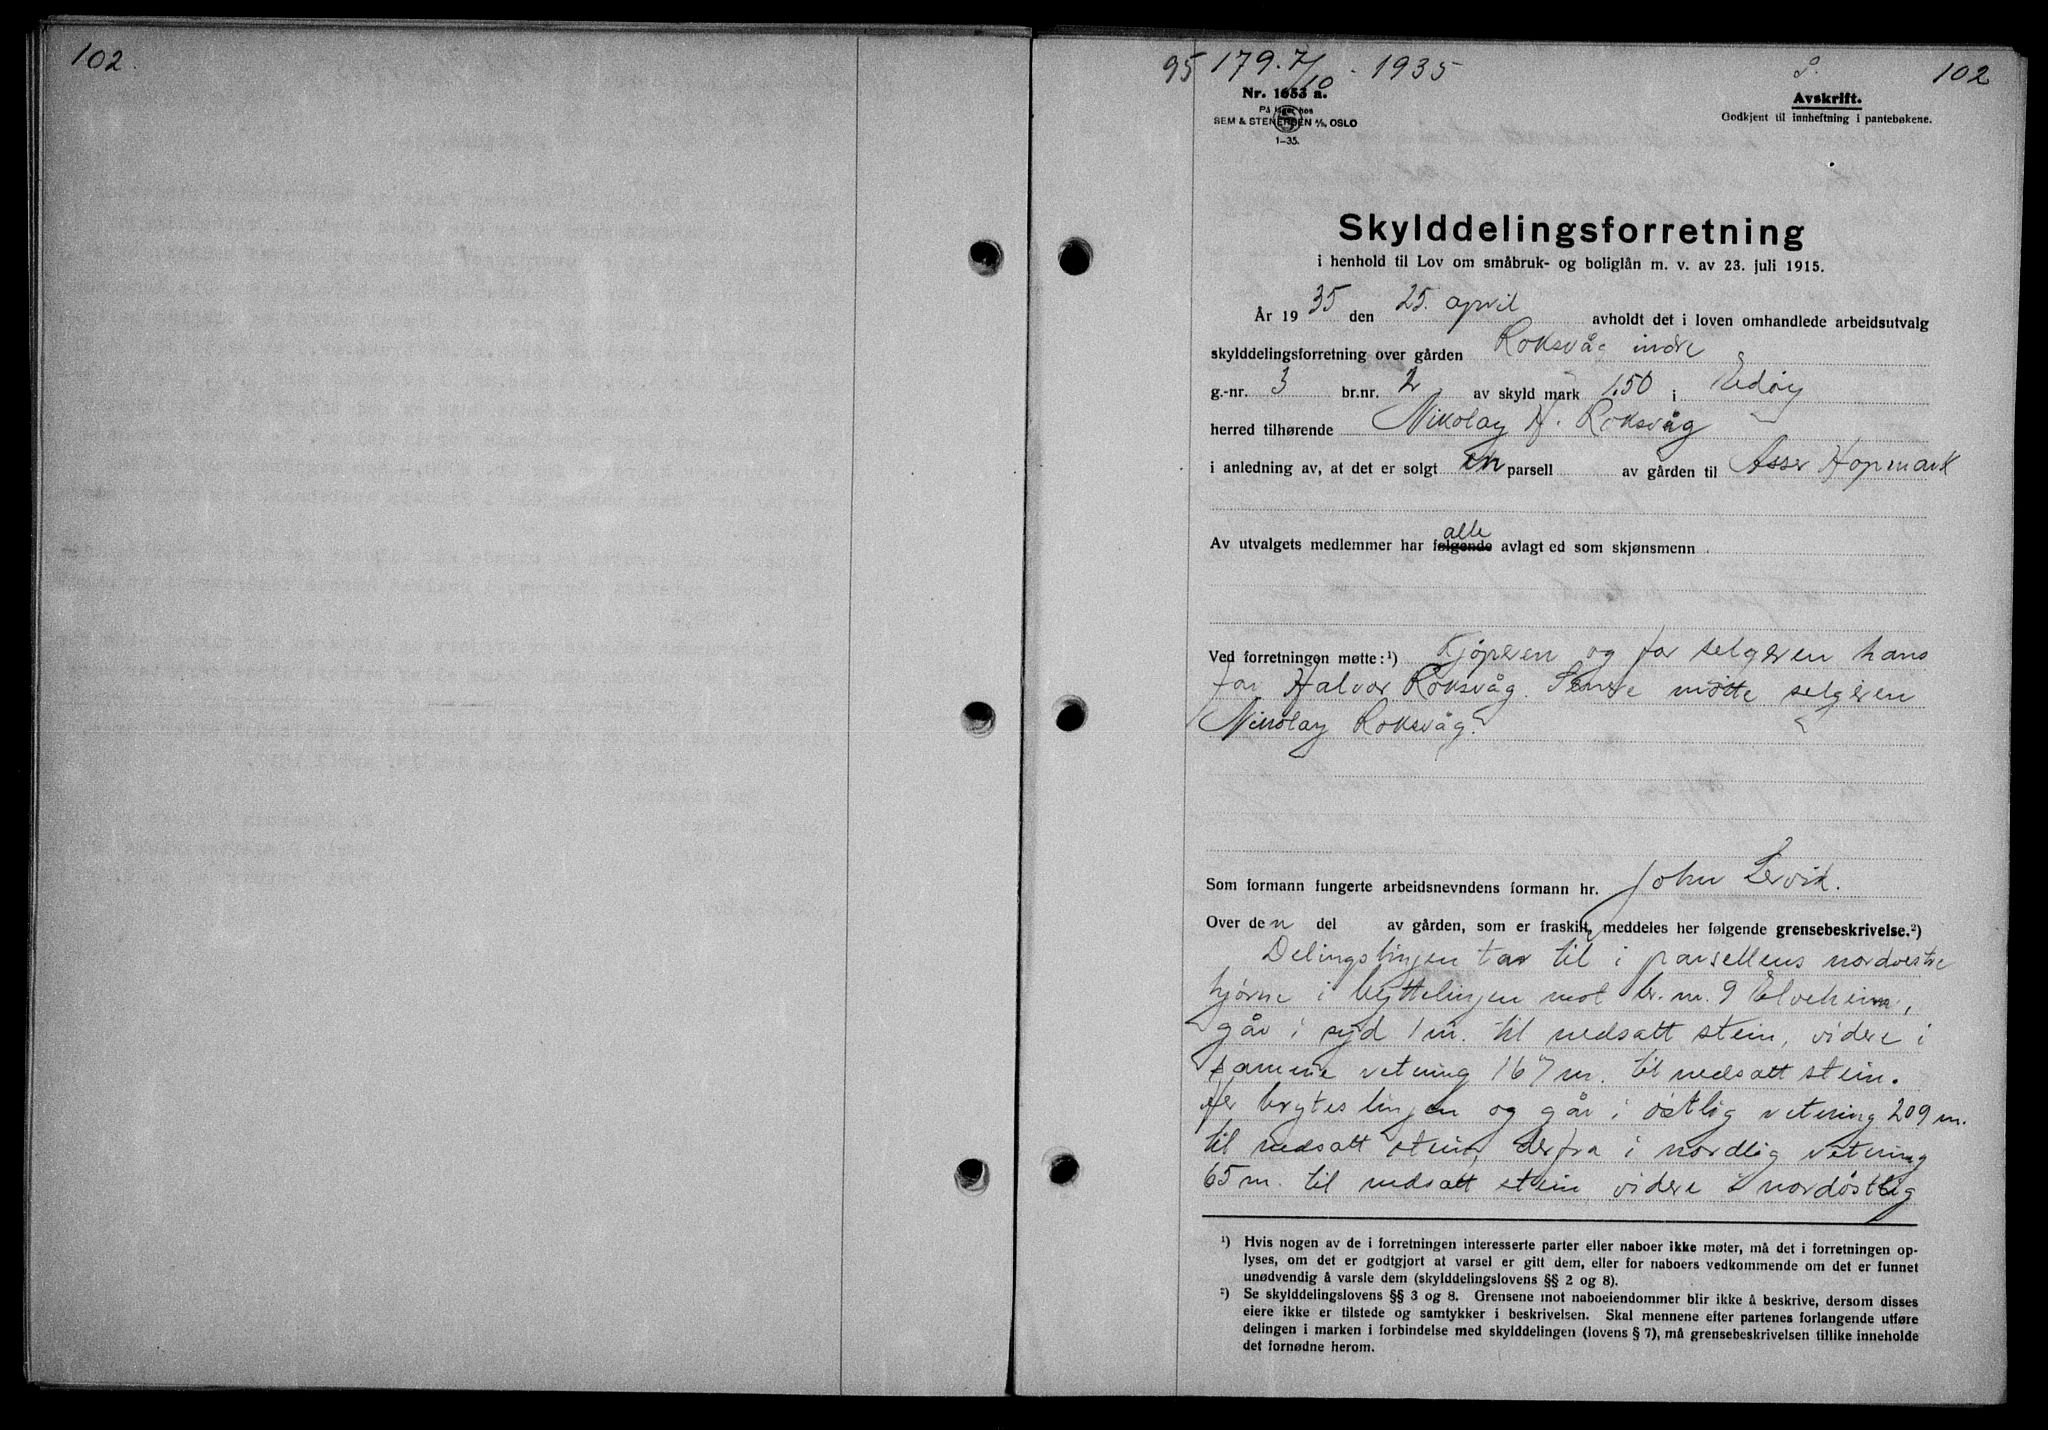 102.
95 179. 7/10 - 1935
102
Nr. 1653 a.
På lager hos
SEM & STENERSEN A/S, OSLO
1-35.
Avskrift.
Godkjent til innheftning i pantebøkene.
Skylddelingsforretning
i henhold til Lov om småbruk- og boliglån m. v. av 23. juli 1915.
År 1935 den 25. april avholdt det i loven omhandlede arbeidsutvalg
skylddelingsforretning over gården Roksvåg indre
g.-nr. 3 br.nr. 2 av skyld mark 1,50 i Edøy
herred tilhørende Nikolay H. Roksvåg
i anledning av, at det er solgt en parsell av gården til Asser Hopmark
alle
Av utvalgets medlemmer har følgende avlagt ed som skjønsmenn
Ved forretningen møtte: ¹) Kjøperen og for selgeren hans
far Halvor Roksvåg. Senere møtte selgeren
Nikolay Roksvåg.
Som formann fungerte arbeidsnevndens formann hr. John Lervik.
Over den del av gården, som er fraskilt, meddeles her følgende grensebeskrivelse.²)
Delingslinjen tar til i parsellens nordvestre
hjørne i byttelinjen mot br. nr. 9 Elveheim,
går i syd 1 m. til nedsatt stein, videre i
samme retning 167 m. til nedsatt stein.
Her brytes linjen og går i østlig retning 209 m.
til nedsatt stein, derfra i nordlig retning
65 m. til nedsatt stein videre i nordøstlig
¹) Hvis nogen av de i forretningen interesserte parter eller naboer ikke møter, må det i forretningen op-
lyses, om det er godtgjort at varsel er gitt dem, eller for naboers vedkommende om det er funnet
unødvendig å varsle dem (skylddelingslovens §§ 2 og 8).
²) Se skylddelingslovens §§ 3 og 8. Grensene mot naboeiendommer blir ikke å beskrive, dersom disses
eiere ikke er tilstede og samtykker i beskrivelsen. Skal mennene efter partenes forlangende utføre
delingen i marken i forbindelse med skylddelingen (lovens § 7), må grensebeskrivelsen tillike inneholde
det fornødne herom.